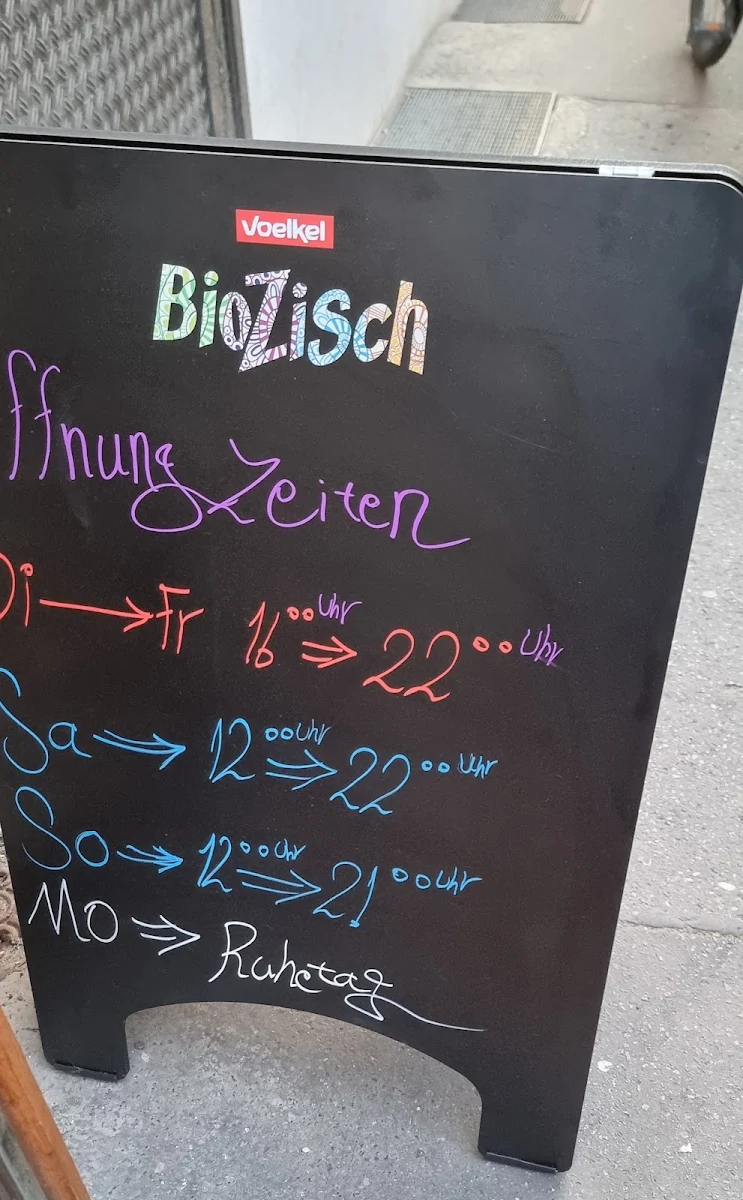 Voelkel
BioZisch
ffnungszeiten
Di → Fr 16°° Uhr ⇒ 22°° Uhr
Sa ⇒ 12°° Uhr ⇒ 22°° Uhr
So ⇒ 12°° Uhr ⇒ 21°° Uhr
Mo ⇒ Ruhetag